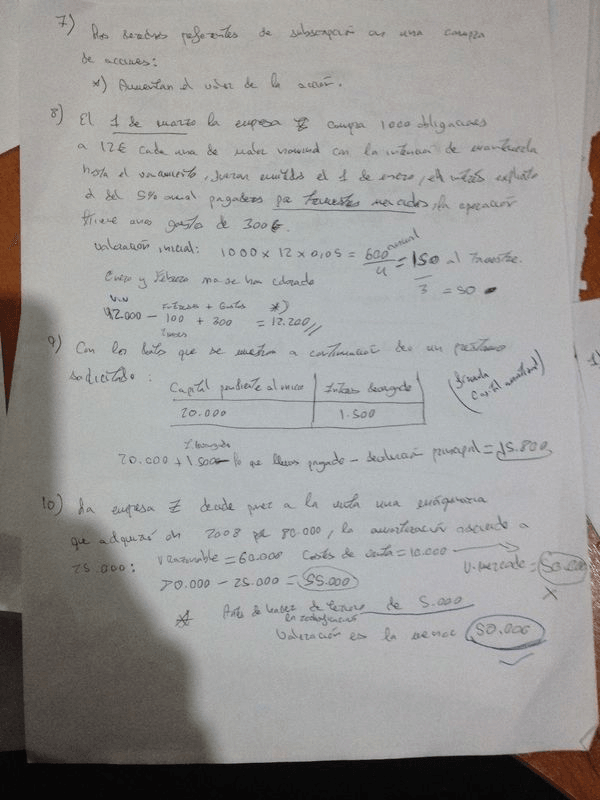 7) Los derechos preferentes de subscripción en una compra
de acciones:
*) Aumentan el valor de la acción.
8) El 1 de marzo la empresa Z compra 1000 obligaciones
a 12€ cada una de valor nominal con la intención de mantenerla
hasta el vencimiento, fueron emitidos el 1 de enero, el interés explícito
es del 5% anual pagaderos por trimestres vencidos, la operación
tiene unos gastos de 300€.
Valoración inicial: 1000 x 12 x 0,05 = 600 anual / 4 = 150 al trimestre.
Enero y Febrero no se han cobrado
150 / 3 = 50
V.N Intereses + Gastos *)
12.000 - 100 + 300 = 12.200 //
2 meses
9) Con los datos que se muestran a continuación de un préstamo
solicitado:
Capital pendiente al inicio | Interés devengado
20.000 | 1.500
20.000 + 1.500 - lo que llevas pagado - devolución principal = 15.800
10) La empresa Z decide poner a la venta una maquinaria
que adquirió en 2008 por 80.000, la amortización asciende a
25.000: V razonable = 60.000 Costes de venta = 10.000
V. mercado = 50.000
x
80.000 - 25.000 = 55.000
* Antes de de 5.000
la reclasificación
Valoración es la menor 50.000